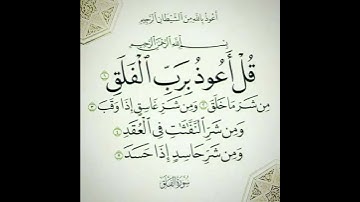 أَعُوذُ بِاللَّهِ مِنَ الشَّيْطَانِ الرَّجِيمِ
بِسْمِ اللَّهِ الرَّحْمَٰنِ الرَّحِيمِ
قُلْ أَعُوذُ بِرَبِّ الْفَلَقِ ١
مِن شَرِّ مَا خَلَقَ ٢ وَمِن شَرِّ غَاسِقٍ إِذَا وَقَبَ ٣
وَمِن شَرِّ النَّفَّٰثَٰتِ فِي الْعُقَدِ ٤
وَمِن شَرِّ حَاسِدٍ إِذَا حَسَدَ ٥
سُورَةُ الْفَلَقِ